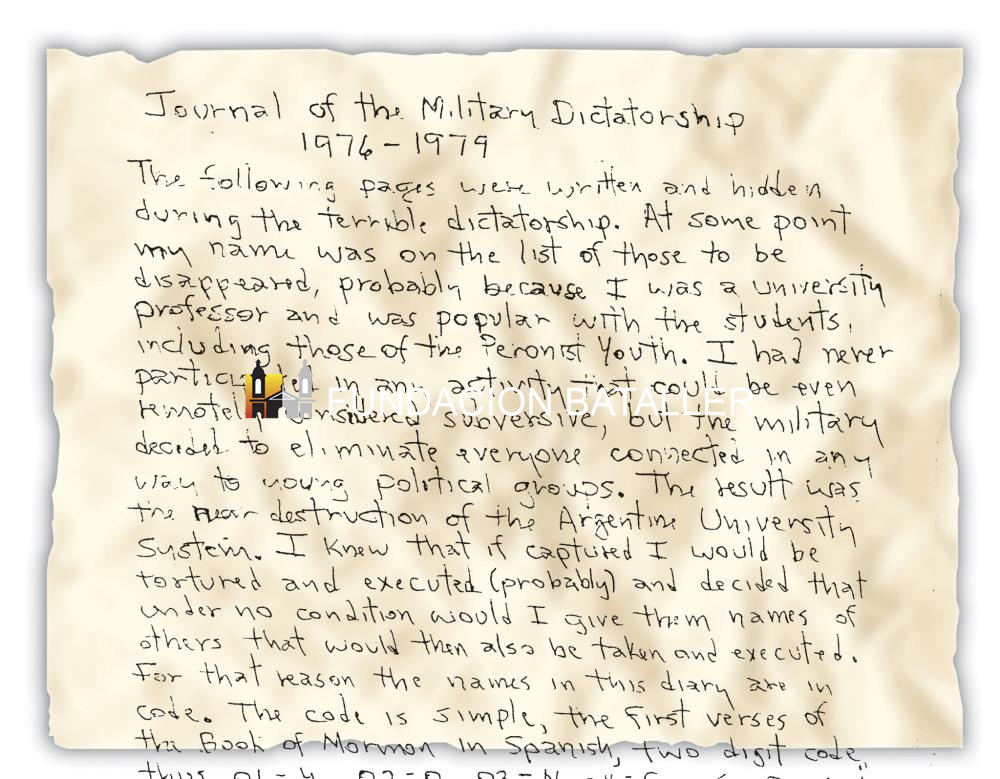 Journal of the Military Dictatorship
1976-1979
The following pages were written and hidden
during the terrible dictatorship. At some point
my name was on the list of those to be
disappeared, probably because I was a university
professor and was popular with the students,
including those of the Peronist Youth. I had never
participated in any activity that could be even
FUNDACION BATALLER
remotely considered subversive, but the military
decided to eliminate everyone connected in any
way to young political groups. The result was
the near destruction of the Argentine University
System. I knew that if captured I would be
tortured and executed (probably) and decided that
under no condition would I give them names of
others that would then also be taken and executed.
For that reason the names in this diary are in
code. The code is simple, the first verses of
the Book of Mormon in Spanish, two digit code,
thus 01=Y 02=O 03=N